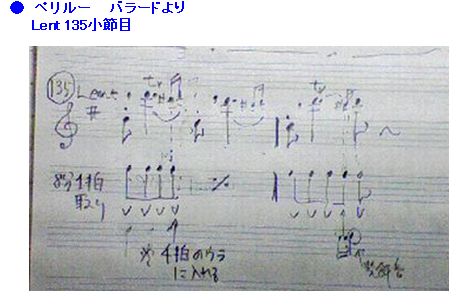 ● ペリルー バラードより
Lent 135小節目
135 Lent
tr tr
8分4拍
取り
4拍のウラ
に入れる